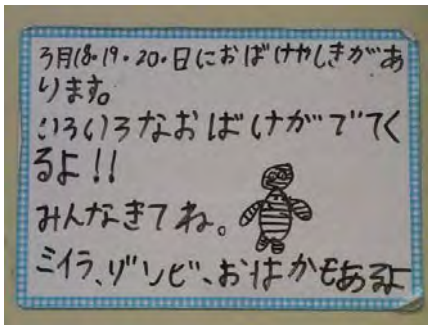 3月18・19・20・日におばけやしきがあ
ります。
いろいろなおばけがでてく
るよ!!
みんなきてね。
ミイラ、ゾンビ、おはかもあるよ